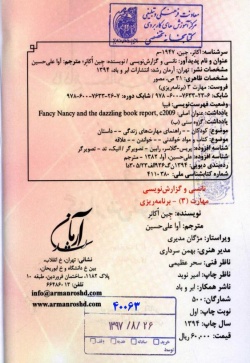 معاونت فرهنگی و تبلیغی
مرکز آموزش های کاربردی
کتابخانه تخصصی
سرشناسه: آکانر، جین، ۱۹۴۷-م
عنوان و نام پدیدآور: نانسی و گزارش‌نویسی / نویسنده جین آکانر؛ مترجم: آوا علی‌حسین
مشخصات نشر: تهران: آرمان رشد؛ انتشارات ابر و باد، ۱۳۹۴
مشخصات ظاهری: ۳۱ص، مصور
فروست: مهارت (۳) برنامه‌ریزی
وضعیت فهرست‌نویسی: فیپا
یادداشت: عنوان اصلی: Fancy Nancy and the dazzling book report, c2009
یادداشت: گروه سنی (ب)
موضوع: کودکان - - راهنمای مهارت‌های زندگی - - داستان
موضوع: کتاب و مواد خواندنی - - خواندن - - علاقه
شناسه افزوده: علی‌حسین، آوا، ۱۳۸۲ - مترجم
شماره کتابشناسی ملی: ۴۱۱۰۳۸۰
نانسی و گزارش‌نویسی
مهارت (۳) - برنامه‌ریزی
نویسنده: جین آکانر
مترجم: آوا علی‌حسین
ویراستار: مژگان مدیری
مدیر هنری: بهمن سرداری
ناظر فنی: سحر عظیمی
ناظر چاپ: امیر نوید
ناشر همکار: ابر و باد
شمارگان: ۵۰۰
نوبت چاپ: اول
سال چاپ: ۱۳۹۴
قیمت: ۶۰,۰۰۰ ریال
آرمان
نشانی: تهران، خ انقلاب،
بین خ دانشگاه و خ ابوریحان،
پلاک ۱۱۸۲، ساختمان فروردین، طبقه ۱۰
تلفن: ۶۶۴۸۶۰۱۳
info@armanroshd.com
www.armanroshd.com
۴۰۰۶۳
۱۳۹۷/۸/۲۶